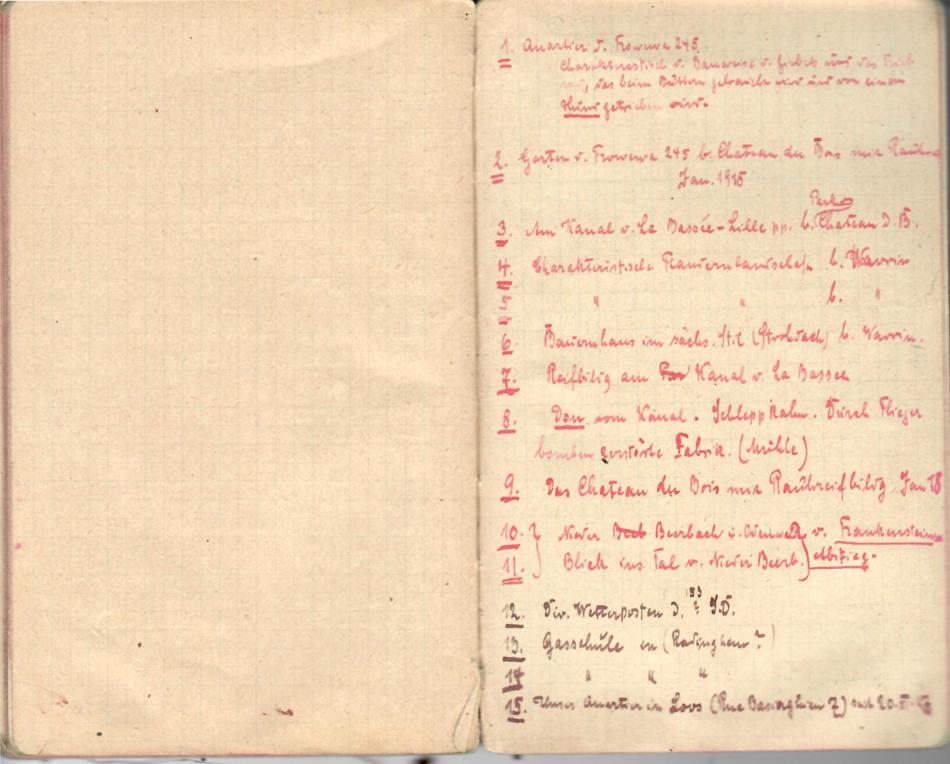 1. Quartier v. Frowewa 245.
Charakteristisch v. Bauweise v. Giebels und das
, das beim Buttern gebraucht wird und von einem
Hund getrieben wird.
2. Garten v. Frowewa 245 b. Chateau du Bois mit
Jan. 1918
Park
3. Am Kanal v. La Bassée-Lille pp. b. Chateau d. B.
4. Charakteristische Bauernlandschaft b. Wavrin
5 " " b. "
6. Bauernhaus im sächs. Stil (Strohdach) b. Wavrin.
7. am Kanal v. La Bassee
8. Don vom Kanal. Schleppkahn. Durch Flieger
bomben zerstörte Fabrik. (Mühle)
9. Das Chateau du Bois mit Rauhreifbildg. Jan 18
10. } Nieder Beerbach i. Odenwald v. Frankenstein
11. } Blick ins Tal v. Nieder Beerb. } Abstieg.
12. Div. Wetterposten d. 133 ? I.D.
13. Gasschule in (Radinghem?)
14 " " "
15. Unser Quartier in Loos (Rue Basinghien 7) seit 20.